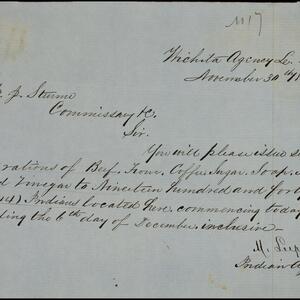 1117
Wichita Agency
November 30th
J. Sturm
Commissary &c.
Sir.
You will please issue
rations of Beef, Flour, Coffee, Sugar, Soap
Vinegar to Nineteen hundred and Forty
44) Indians located here, commencing today
ding the 6th day of December inclusive –
Indian Ag